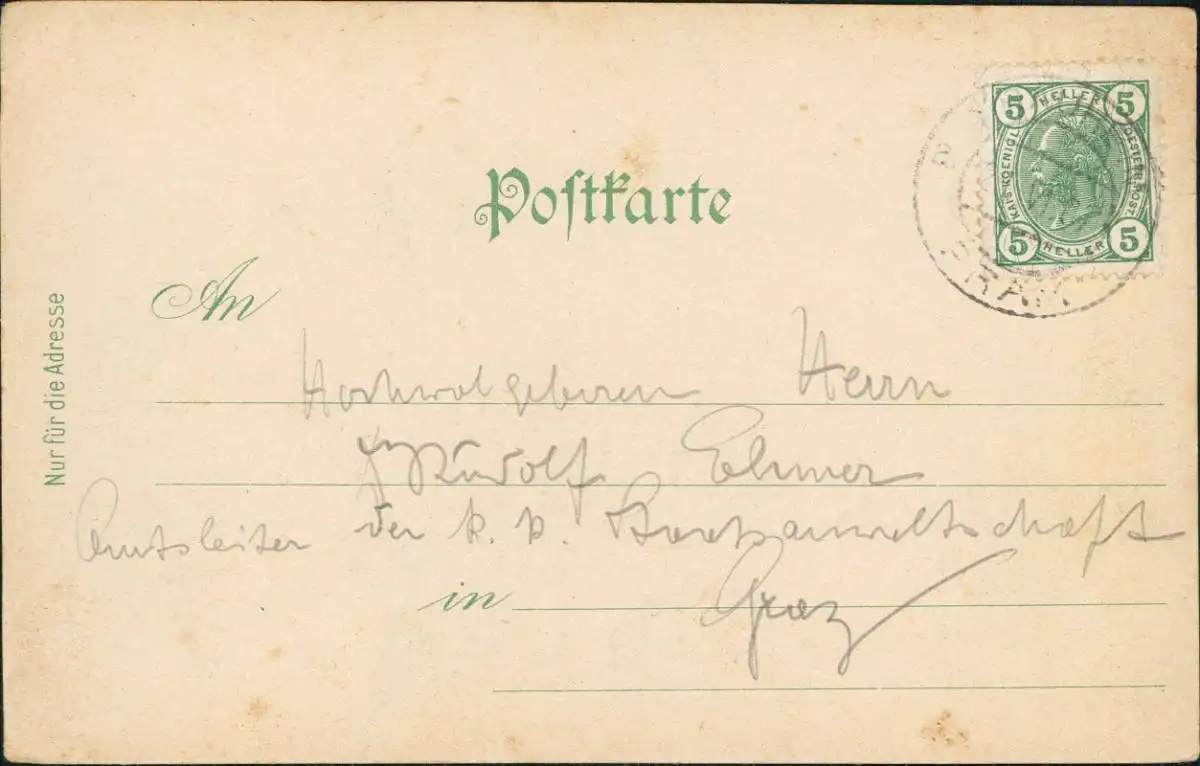 Postkarte
5 HELLER 5
KAIS. KOENIGL. OESTERR. POST
5 HELLER 5
An
Nur für die Adresse
Hochwolgeboren Herrn
Rudolf Ehmer
Amtsleiter der k. k. Staatsanwaltschaft
in Graz